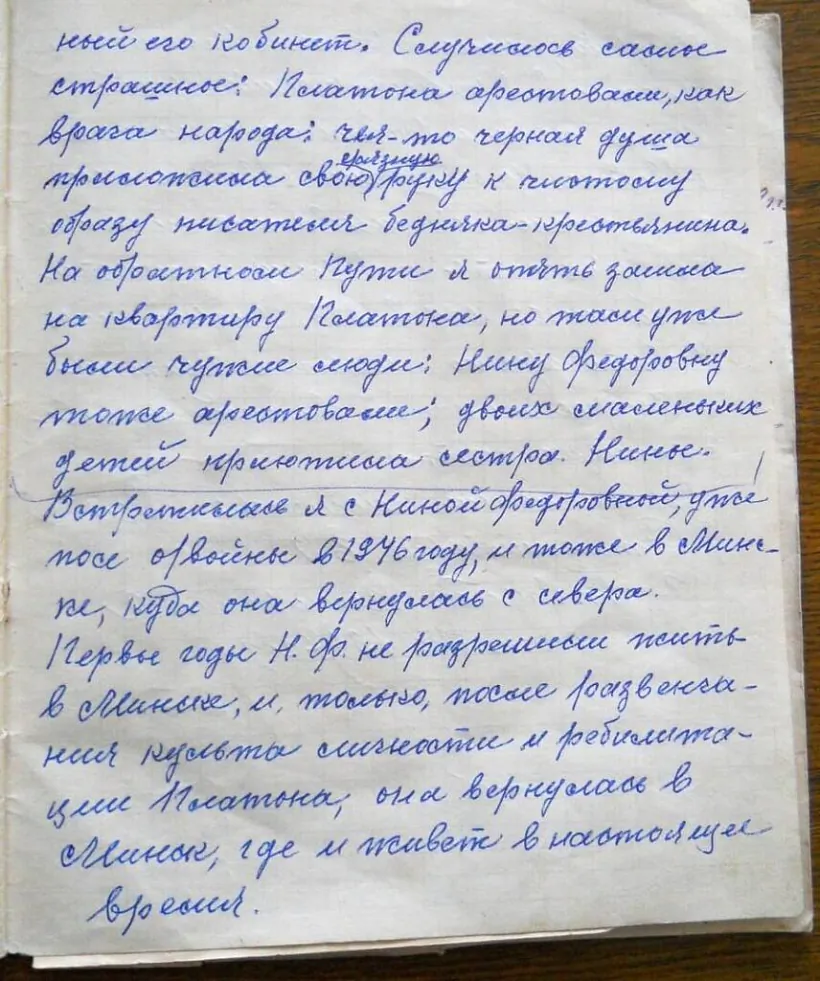 ный его кабинет. Случилось самое
страшное: Платона арестовали, как
врага народа: чья-то черная душа
приложила свою грязную руку к чистому
образу писателя бедняка-крестьянина.
На обратном пути я опять зашла
на квартиру Платона, но там уже
были чужие люди: Нину Федоровну
тоже арестовали; двоих маленьких
детей приютила сестра Нины.
Встретилась я с Ниной Федоровной, уже
после войны в 1946 году, и тоже в Минс-
ке, куда она вернулась с севера.
Первые годы Н. Ф. не разрешили жить
в Минске, и, только, после развенча-
ния культа личности и ребилита-
ции Платона, она вернулась в
Минск, где и живет в настоящее
время.